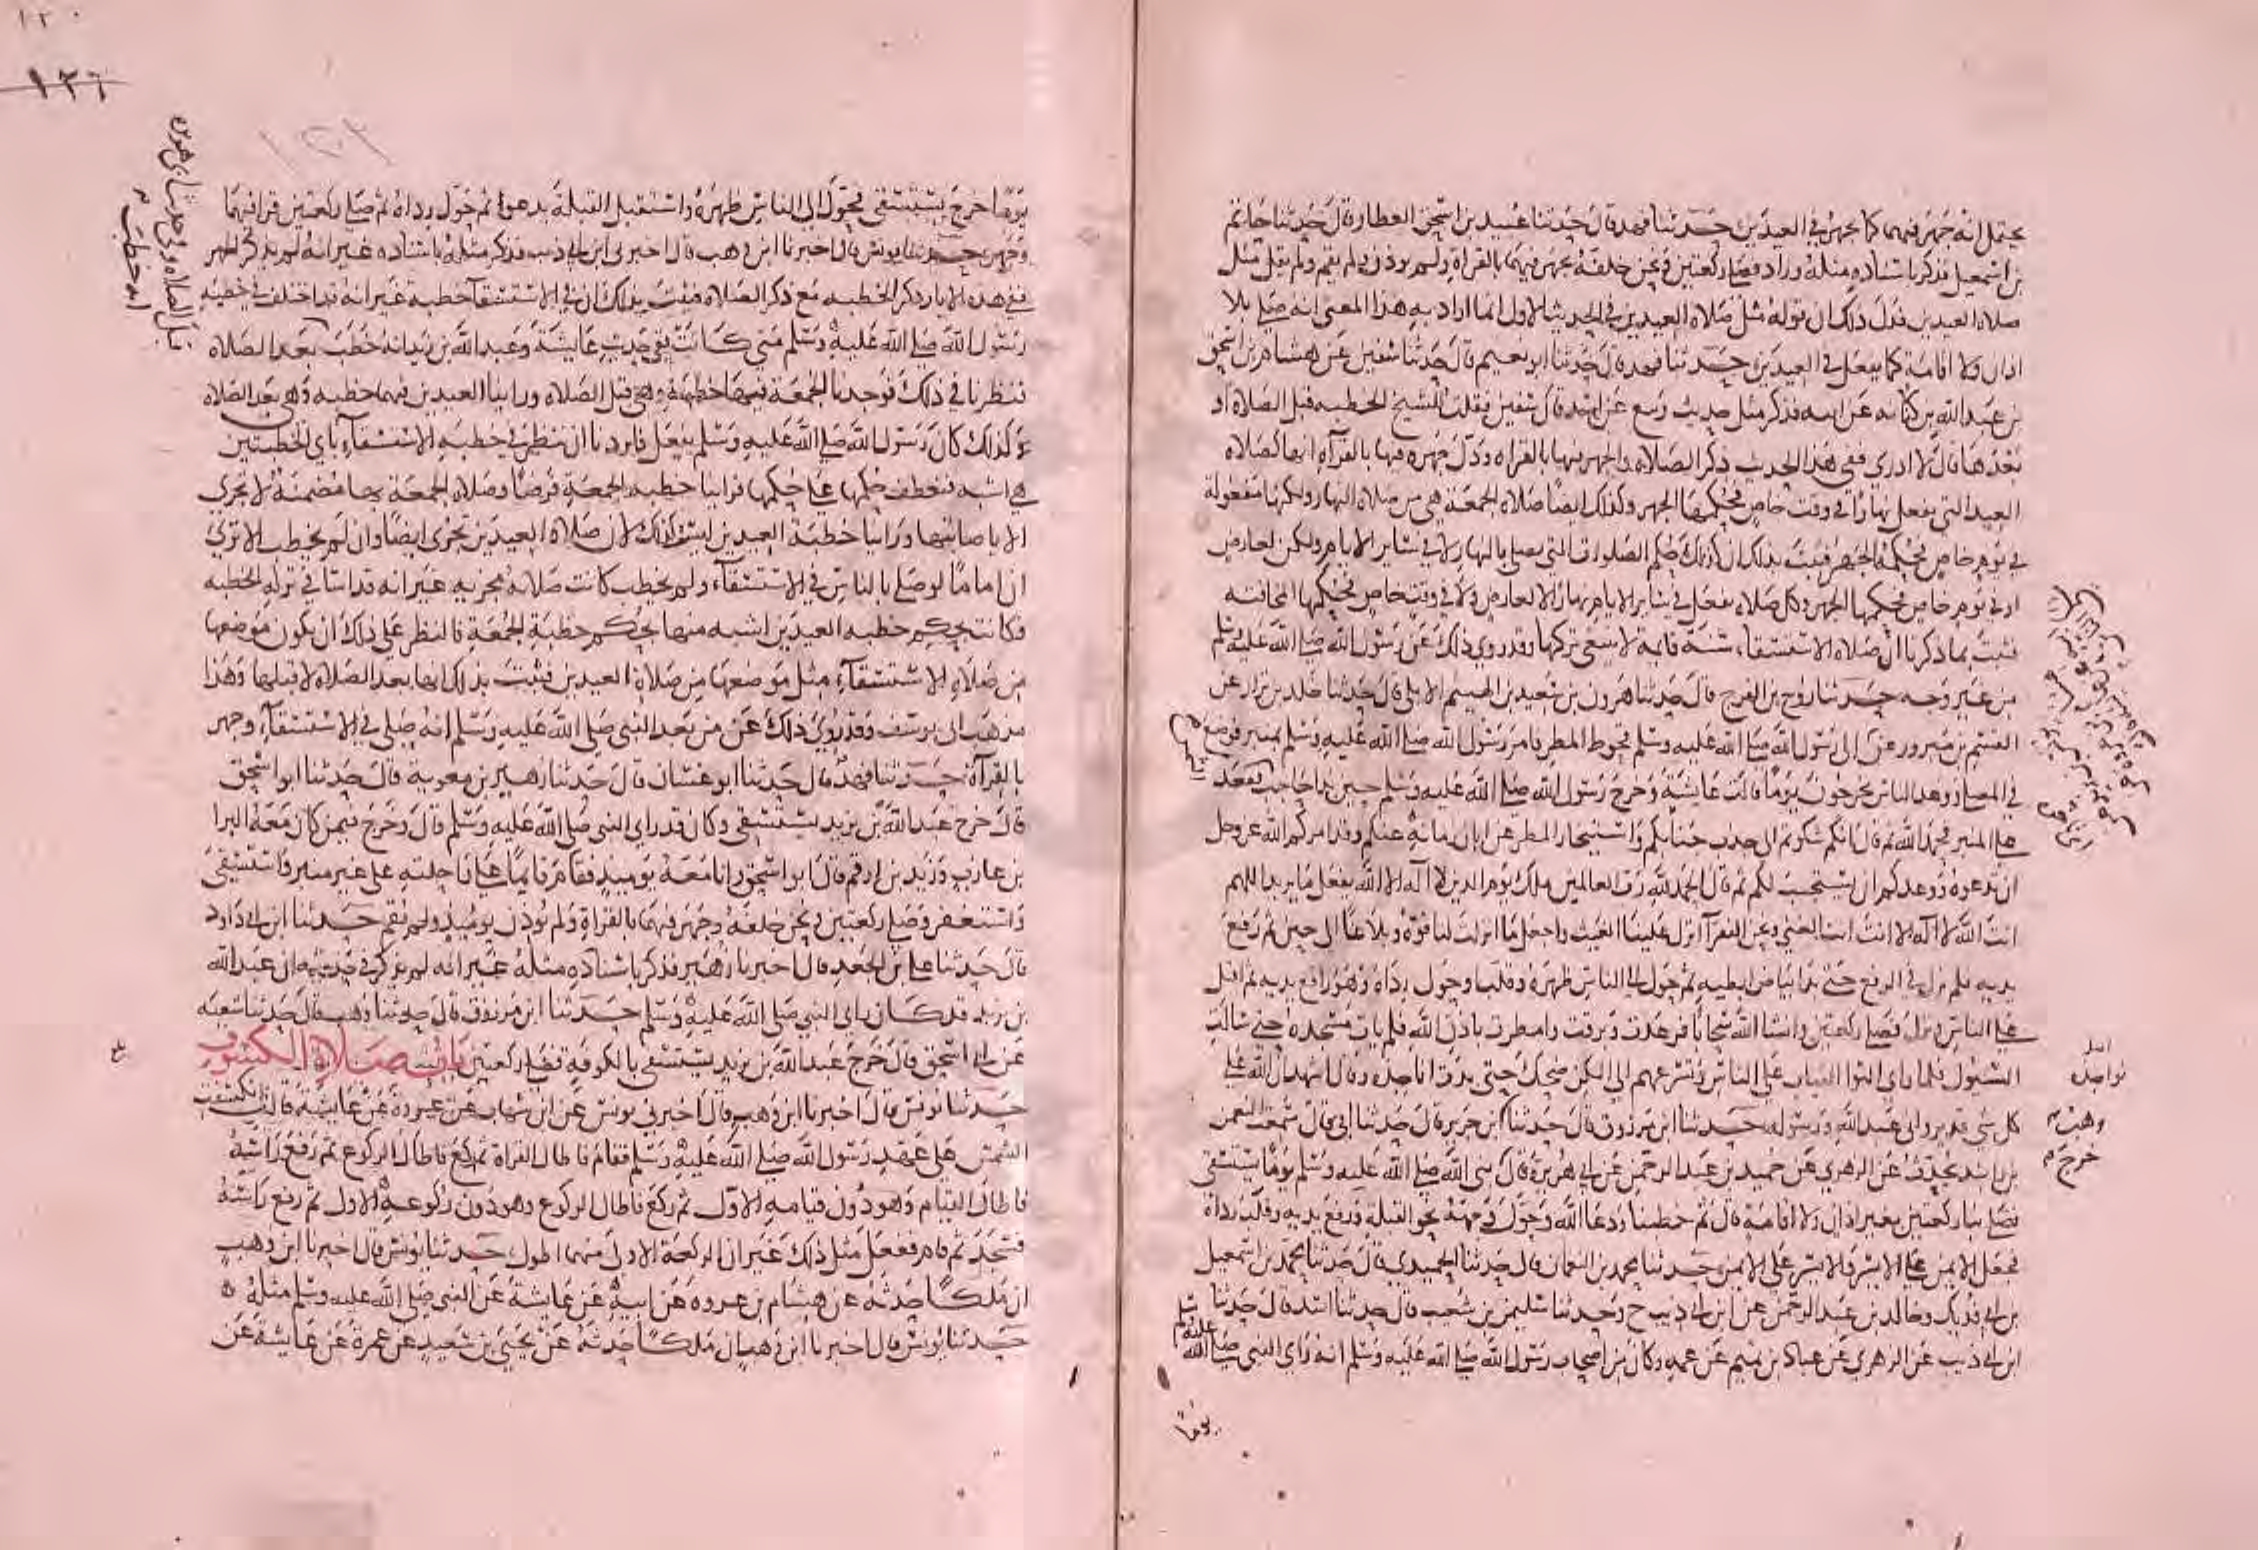 يحتمل انه جهر فيهما كما يجهر في العيدين حدثنا فهد قال حدثنا عبيد بن اسحق العطار قال حدثنا حاتم
بن اسمعيل فذكر باسناده مثله وزاد فصلى ركعتين ونحن خلفه يجهر فيهما بالقراة ولم يوذن ولم يقم ولم يقل مثل
صلاة العيدين فدل ذلك ان قوله مثل صلاة العيدين في الحديث الاول انما اراد به هذا المعنى انه صلى بلا
اذان ولا اقامة كما يفعل في العيدين حدثنا فهد قال حدثنا ابو نعيم قال حدثنا سفين عن هشام بن اسحق
بن عبد الله بن كنانه عن ابيه فذكر مثل حديث ربيع عن اسد قال سفين فقلت للشيخ الخطبه قبل الصلاة او
بعدها قال لا ادري ففي هذا الحديث ذكر الصلاة والجهر فيها بالقراه ودل جهره فيها بالقراه انها كصلاه
العيد التي تفعل نهارا في وقت خاص فحكمها الجهر وكذلك ايضا صلاة الجمعة هي من صلاة النهار ولكنها مفعولة
في يوم خاص فحكمها الجهر فثبت بذلك ان كذلك حكم الصلوات التي تصلى بالنهار لا في سائر الايام ولكن لعارض
او في يوم خاص فحكمها الجهر وكل صلاه تفعل في سائر الايام نهارا لا لعارض ولا في وقت خاص فحكمها المخافته
فثبت بما ذكرنا ان صلاة الاستسقاء سنة قايمة لا ينبغي تركها وقد روي ذلك عن رسول الله صلى الله عليه وسلم
من غير وجه حدثنا روح بن الفرج قال حدثنا هرون بن سعيد بن الهيثم الايلي قال حدثنا خلد بن نزار عن
القسم بن مبرور عن الى رسول الله صلى الله عليه وسلم قحوط المطر فامر رسول الله صلى الله عليه وسلم بمنبر فوضع
في المصلى ووعد الناس يخرجون يوما قالت عايشة وخرج رسول الله صلى الله عليه وسلم حين بدا حاجب فقعد
على المنبر فحمد الله ثم قال انكم شكوتم الى جدب جنابكم واستيخار المطر عن ابان زمانه عنكم وقد امركم الله عز وجل
ان تدعوه ووعدكم ان يستجيب لكم ثم قال الحمد لله رب العالمين ملك يوم الدين لا اله الا الله يفعل ما يريد اللهم
انت الله لا اله الا انت انت الغني ونحن الفقرآ انزل علينا الغيث واجعل ما انزلت لنا قوة وبلاغا الى حين ثم رفع
يديه فلم يزل في الرفع حتى بدا بياض ابطيه ثم حول الى الناس ظهره وقلب وحول رداه وهو رافع يديه ثم اقبل
على الناس ونزل فصلى ركعتين وانشا الله سحابا فرعدت وبرقت وامطرت باذن الله فلم يات مسجده حتى سالت
السيول فلما راى التوا الثياب على الناس وتسرعهم الى الكن ضحك حتى بدت اناجده وقال اشهد ان الله على
كل شي قدير واني عبد الله ورسوله حدثنا ابن مرزوق قال حدثنا ابن جرير قال حدثنا ابي قال سمعت النعمن
بن راشد يحدث عن الزهري عن حميد بن عبد الرحمن عن ابي هريرة قال نبي الله صلى الله عليه وسلم يوما يستسقى
فصلى بنا ركعتين بغير اذان ولا اقامة قال ثم خطبنا ودعا الله وحول وجهه نحو القبلة ورفع يديه وقلب رداه
فجعل الايمن على الايسر والايسر على الايمن حدثنا محمد بن النعمان قال حدثنا الحميدي قال حدثنا محمد بن اسمعيل
بن ابي فديك وخالد بن عبد الرحمن عن ابن ابي ذيب ح وحدثنا سليمن بن شعيب قال حدثنا اسد قال حدثنا
ابن ابي ذيب عن الزهري عن عباد بن تميم عن عمه وكان من اصحاب رسول الله صلى الله عليه وسلم انه راى النبي صلى الله عليه وسلم
نواجده
وهب
خرج
يوما
١٢٠
١٢٦
يوما خرج يستسقى فحول الى الناس ظهره واستقبل القبلة يدعوا ثم حول رداه ثم صلى ركعتين قرا فيهما
وجهر حدثنا يونس قال اخبرنا ابن وهب قال اخبرني ابن ابي ذيب فذكر مثله باسناده غير انه لم يذكر الجهر
ففي هذه الاثار ذكر الخطبه مع ذكر الصلاة فثبت بذلك ان في الاستسقآ خطبة غير انه قد اختلف في خطبة
رسول الله صلى الله عليه وسلم متى كانت ففي حديث عايشة وعبد الله بن زيد انه خطب بعد الصلاه
فنظرنا في ذلك فوجدنا الجمعة فيها خطبة وهي قبل الصلاة وراينا العيدين فيهما خطبه وهي بعد الصلاه
وكذلك كان رسول الله صلى الله عليه وسلم يفعل فاردنا ان ننظر في خطبة الاستسقآء باي الخطبتين
هي اشبه فنعطف حكمها على حكمها فراينا خطبة الجمعة فرضا وصلاة الجمعة بها مضمنة لا تجزى
الا باصابتها وراينا خطبة العيدين ليست كذلك لان صلاة العيدين تجزى ايضا وان لم يخطب الا ترى
ان اماما لو صلى بالناس في الاستسقآء ولم يخطب كانت صلاته مجزيه غير انه قد اسا في تركه الخطبه
فكانت بحكم خطبه العيدين اشبه منها بحكم خطبة الجمعة فالنظر على ذلك ان يكون موضعها
من صلاة الاستسقآء مثل موضعها من صلاة العيدين فثبت بذلك انها بعد الصلاة لا قبلها وهذا
مذهب ابي يوسف وقد روي ذلك عن من بعد النبي صلى الله عليه وسلم انه صلى في الاستسقآء وجهر
بالقرآة حدثنا فهد قال حدثنا ابو غسان قال حدثنا زهير بن معوية قال حدثنا ابو اسحق
قال خرج عبد الله بن يزيد يستسقي وكان قد راى النبي صلى الله عليه وسلم قال وخرج فيمن كان معه البرا
بن عازب وزيد بن ارقم قال ابو اسحق وانا معه يوميذ فقام قايما على راحلته على غير منبر واستسقى
واستغفر وصلى ركعتين ونحن خلفه وجهر فيهما بالقراة ولم يوذن يوميذ ولم يقم حدثنا ابن ابي داود
قال حدثنا علي بن الجعد قال اخبرنا زهير فذكر باسناده مثله غير انه لم يذكر في حديثه ان عبد الله
بن يزيد قد كان راى النبي صلى الله عليه وسلم حدثنا ابن مرزوق قال حدثنا وهب قال حدثنا شعبه
عن ابي اسحق قال خرج عبد الله بن يزيد يستسقى بالكوفة فصلى ركعتين باب صلاة الكسوف
حدثنا يونس قال اخبرنا ابن وهب قال اخبرني يونس عن ابن شهاب عن عروة عن عايشة قالت كسفت
الشمس على عهد رسول الله صلى الله عليه وسلم فقام فاطال القراة ثم ركع فاطال الركوع ثم رفع راسه
فاطال القيام وهو دون قيامه الاول ثم ركع فاطال الركوع وهو دون ركوعه الاول ثم رفع راسه
فسجد ثم قام ففعل مثل ذلك غير ان الركعة الاولى منهما اطول حدثنا يونس قال اخبرنا ابن وهب
ان ملكا حدثه عن هشام بن عروه عن ابيه عن عايشة عن النبي صلى الله عليه وسلم مثله
حدثنا يونس قال اخبرنا ابن وهب ان ملكا حدثه عن يحيى بن سعيد عن عمرة عن عايشة عن